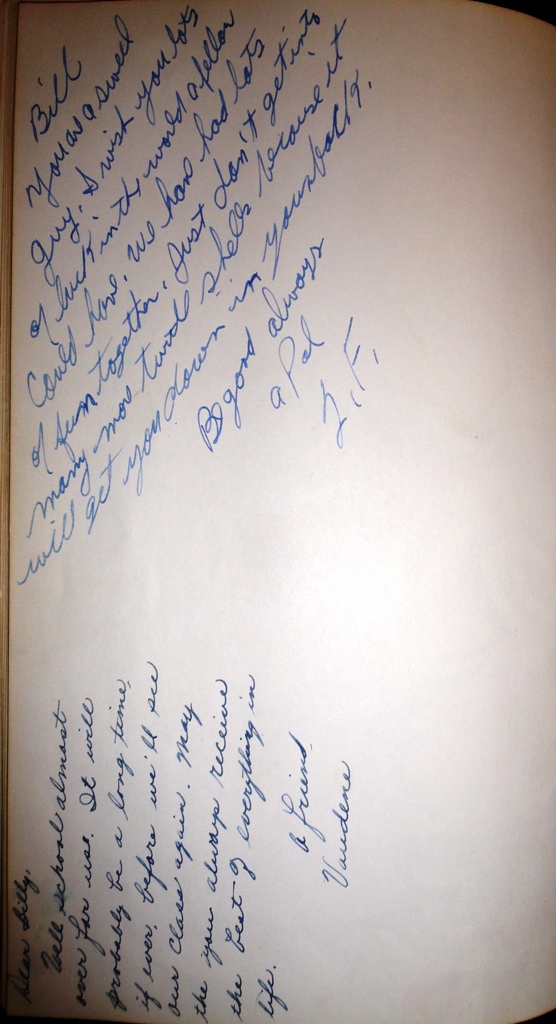 Bill
You are a sweel
guy. I wish you lots
of luck in the world a fellow
could have. We have had lots
of fun together. Just don't get into
many more turtle shells because it
will get you down in your
Be good always
a Pal
Z. F.
Dear Billy,
Well school almost
over for us. It will
probably be a long time,
if ever, before we'll see
our class again. May
the you always receive
the best of everything in
life.
A friend
Vaudene